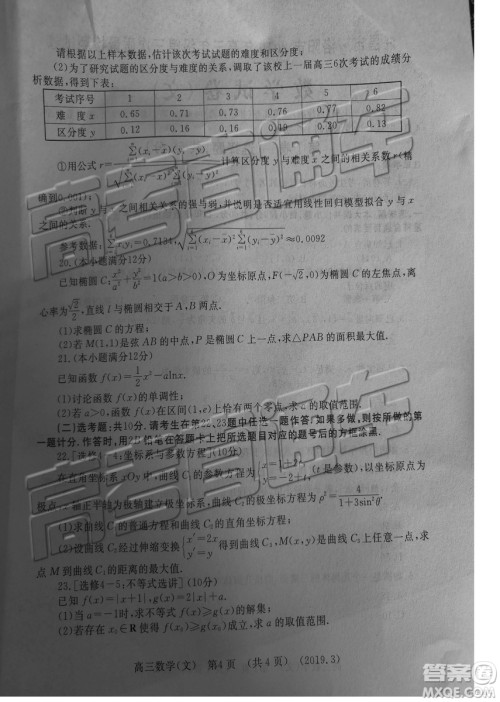 请根据以上样本数据,估计该次考试试题的难度和区分度;
(2)为了研究试题的区分度与难度的关系,调取了该校上一届高三6次考试的成绩分
析数据,得到下表:
考试序号 1 2 3 4 5 6
难 度 x 0.65 0.71 0.74 0.76 0.77 0.82
区分度 y 0.12 0.16 0.16 0.19 0.20 0.13
①用公式 r= 计算区分度 y 与难度 x 之间的相关系数 r(精
确到0.001);
②判断 y 与 x 之间相关关系的强与弱,并说明是否适宜用线性回归模型拟合 y 与 x
之间的关系.
参考数据: ≈0.0092
20.(本小题满分12分)
已知椭圆 C:x²/a²+y²/b²=1(a>b>0),O 为坐标原点,F(-√2,0)为椭圆 C 的左焦点,离
心率为√2/2,直线 l 与椭圆相交于 A,B 两点.
(1)求椭圆 C 的方程;
(2)若 M(1,1)是弦 AB 的中点,P 是椭圆 C 上一点,求△PAB 的面积最大值.
21.(本小题满分12分)
已知函数 f(x)=1/2x²-alnx.
(1)讨论函数 f(x)的单调性;
(2)若 a>0,函数 f(x)在区间(1,e)上恰有两个零点,求 a 的取值范围.
(二)选考题:共10分.请考生在第22、23题中任选一题作答!如果多做,则按所做的第
一题计分.作答时,用2B铅笔在答题卡上把所选题目对应的题号后的方框涂黑.
22.[选修4-4:坐标系与参数方程](10分)
在直角坐标系 xOy 中,曲线 C₁ 的参数方程为{x=1+t, y=-2+t (t 是参数),以坐标原点为
极点,x 轴正半轴为极轴建立极坐标系,曲线 C₂ 的极坐标方程为 ρ²=4/(1+3sin²θ).
(1)求曲线 C₁ 的普通方程和曲线 C₂ 的直角坐标方程;
(2)设曲线 C₂ 经过伸缩变换{x′=2x, y′=y 得到曲线 C₃,M(x,y)是曲线 C₃ 上任意一点,求
点 M 到曲线 C₁ 的距离的最大值.
23.[选修4-5:不等式选讲](10分)
已知 f(x)=|x+1|,g(x)=2|x|+a.
(1)当 a=-1时,求不等式 f(x)⩾g(x)的解集;
(2)若存在 x₀∈R 使得 f(x₀)⩾g(x₀)成立,求 a 的取值范围.
高三数学(文) 第4页 (共4页) (2019.3)
高考直通车
高考直通车
答案圈
MXEQE.COM